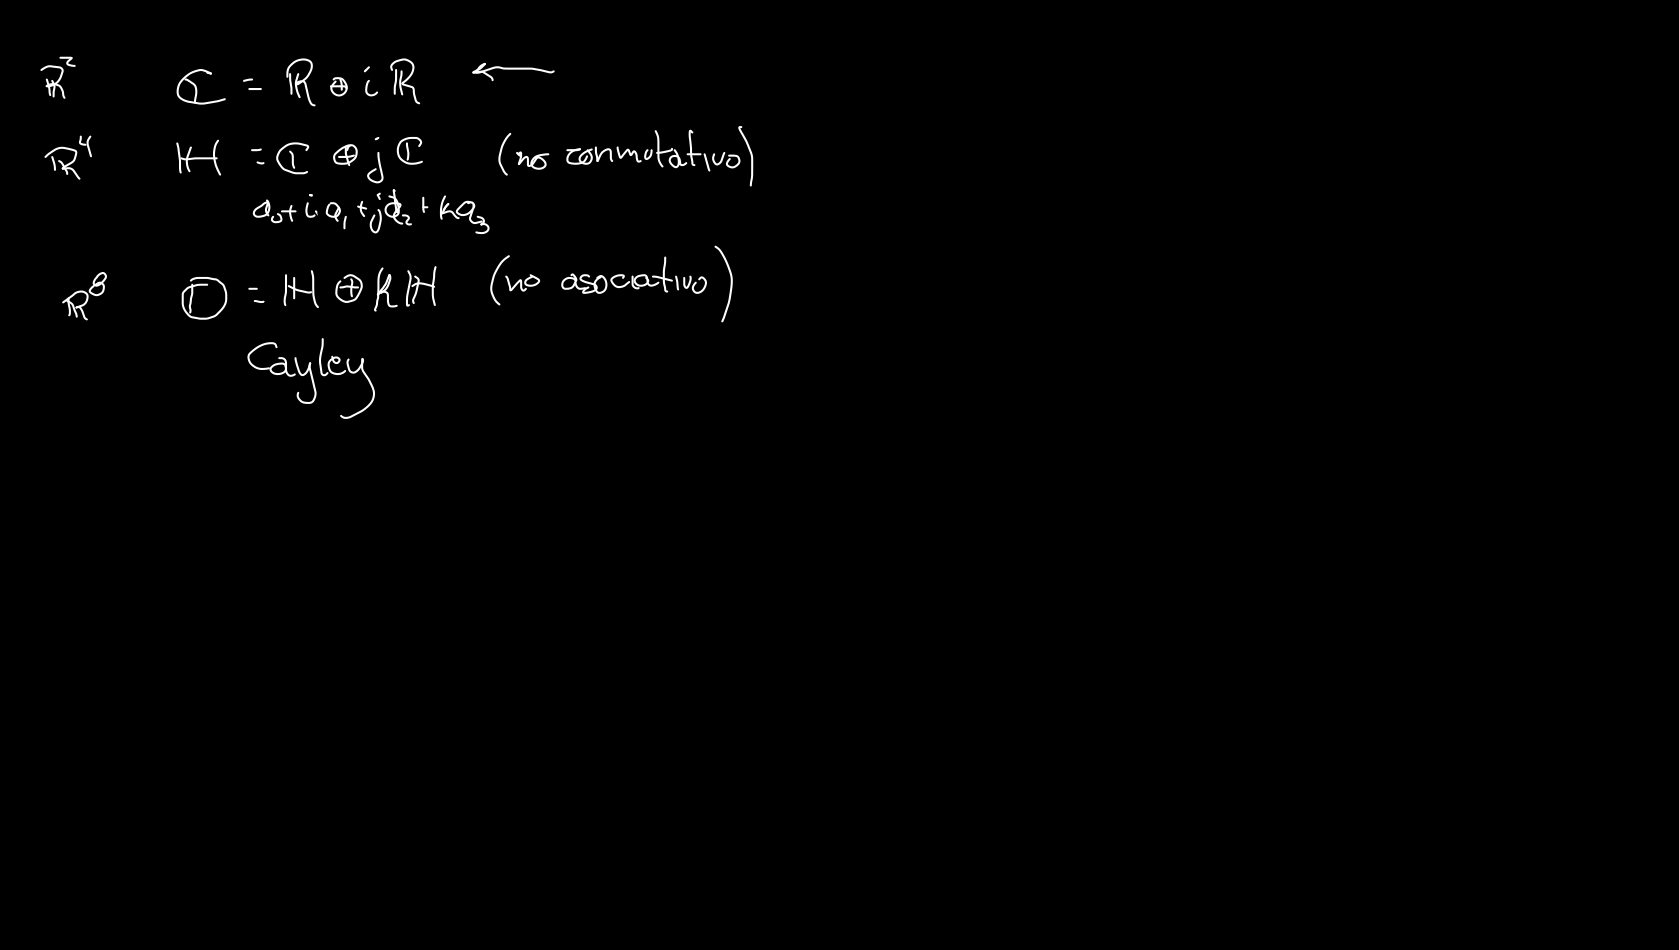 ℝ² ℂ = ℝ ⊕ iℝ ←
ℝ⁴ ℍ = ℂ ⊕ jℂ (no conmutativo)
a₀ + i a₁ + j a₂ + k a₃
ℝ⁸ 𝕆 = ℍ ⊕ kℍ (no asociativo)
Cayley